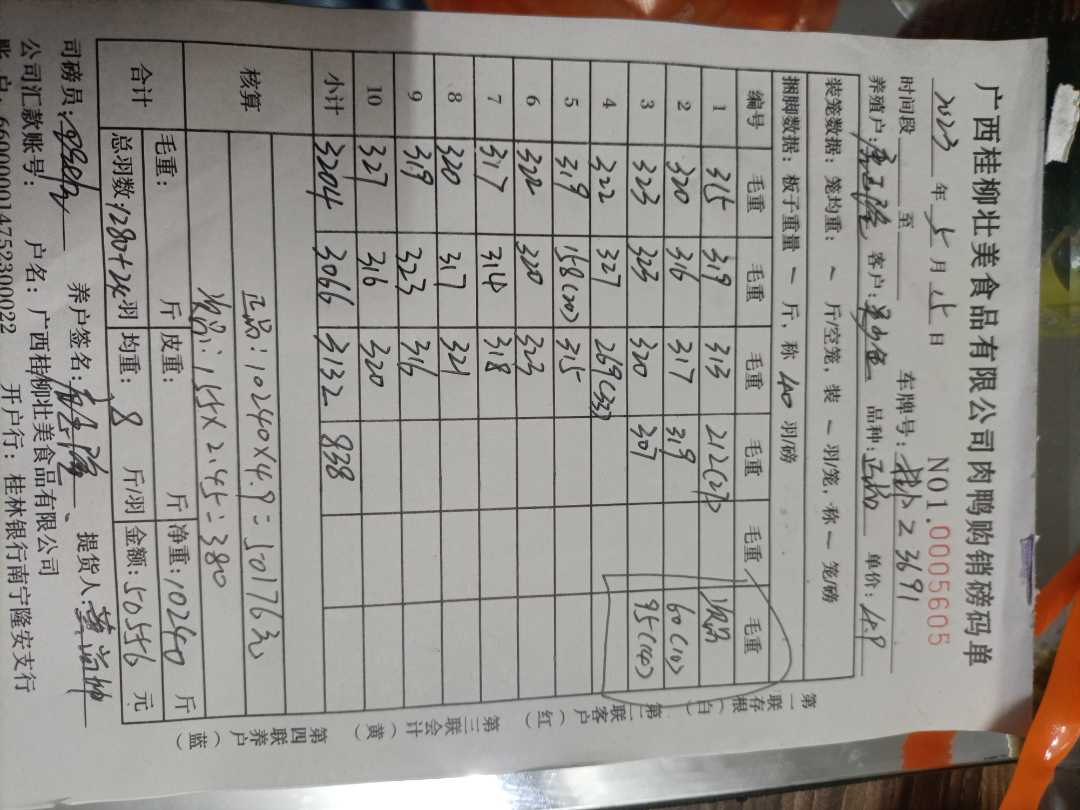 广西桂柳壮美食品有限公司肉鸭购销磅码单
NO1.0005605
2023 年 5 月 15 日
时间段 至 车牌号: 桂A Z3691
养殖户: 客户: 品种: 单价: 4.9
装笼数据: 笼均重: ~ 斤/空笼, 装 ~ 羽/笼, 称 ~ 笼/磅
捆脚数据: 板子重量 ~ 斤, 称 40 羽/磅
编号 毛重 毛重 毛重 毛重 毛重 毛重
1 315 319 313 212(27) 次品
2 320 316 317 319 60(10)
3 323 323 320 307 95(14)
4 322 327 269(33)
5 319 158(20) 315
6 322 320 323
7 317 314 318
8 320 317 321
9 319 323 316
10 327 316 320
小计 3204 3066 3132 838
核算 正品: 10240×4.9=50176元
次品: 155×2.45=380
合计 毛重: 斤 皮重: 斤 净重: 10240 斤
总羽数: 1280+24 羽 均重: 8 斤/羽 金额: 50556 元
司磅员: 养户签名: 提货人:
公司汇款账号: 户名: 广西桂柳壮美食品有限公司
账户: 660000014752300022 开户行: 桂林银行南宁隆安支行
第一联存根(白)
第二联客户(红)
第三联会计(黄)
第四联养户(蓝)